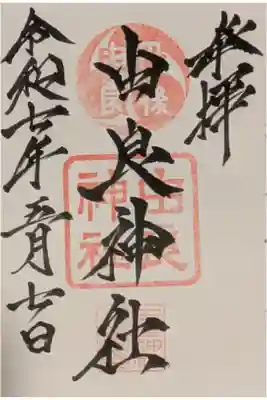 奉拝
丹後
由良
由良神社
由良
神社
令和七年五月七日